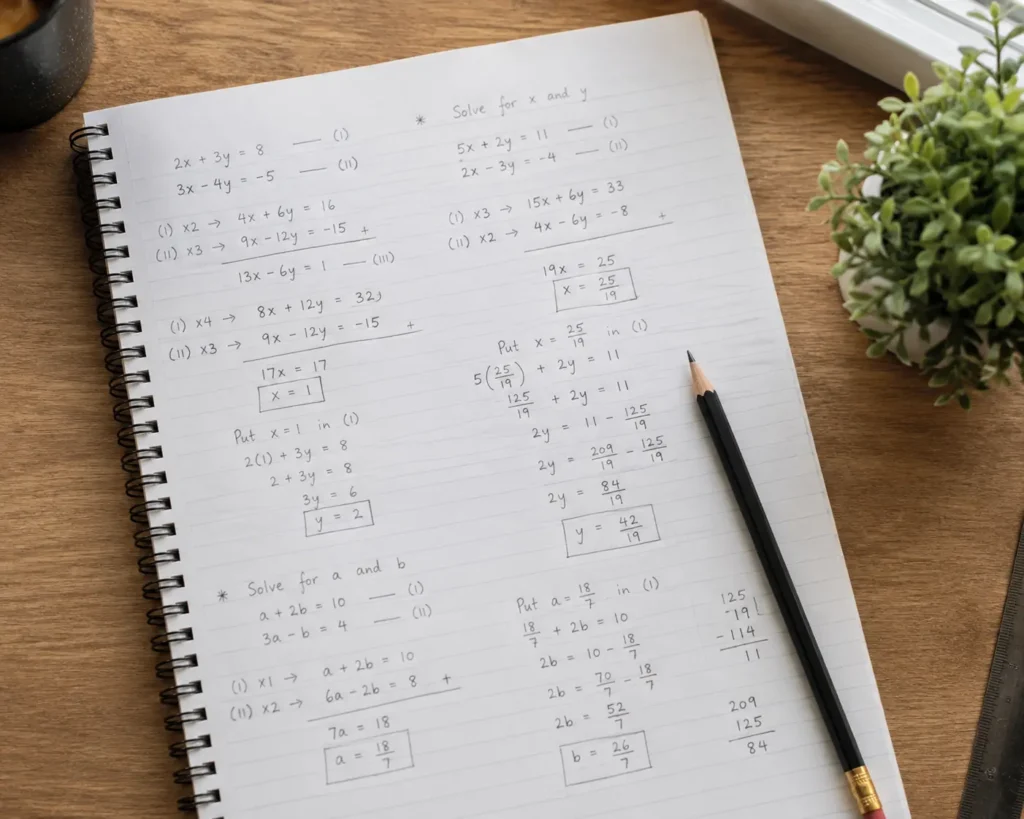 2x + 3y = 8 —— (I)
3x - 4y = -5 —— (II)
(I) ×2 → 4x + 6y = 16
(II) ×3 → 9x - 12y = -15 +
13x - 6y = 1 —— (III)
(I) ×4 → 8x + 12y = 32
(II) ×3 → 9x - 12y = -15 +
17x = 17
x = 1
Put x = 1 in (I)
2(1) + 3y = 8
2 + 3y = 8
3y = 6
y = 2
* Solve for x and y
5x + 2y = 11 —— (I)
2x - 3y = -4 —— (II)
(I) ×3 → 15x + 6y = 33
(II) ×2 → 4x - 6y = -8 +
19x = 25
x = 25/19
Put x = 25/19 in (I)
5(25/19) + 2y = 11
125/19 + 2y = 11
2y = 11 - 125/19
2y = 209/19 - 125/19
2y = 84/19
y = 42/19
* Solve for a and b
a + 2b = 10 —— (I)
3a - b = 4 —— (II)
(I) ×1 → a + 2b = 10
(II) ×2 → 6a - 2b = 8 +
7a = 18
a = 18/7
Put a = 18/7 in (I)
18/7 + 2b = 10
2b = 10 - 18/7
2b = 70/7 - 18/7
2b = 52/7
b = 26/7
125
19
-114
11
209
125
84